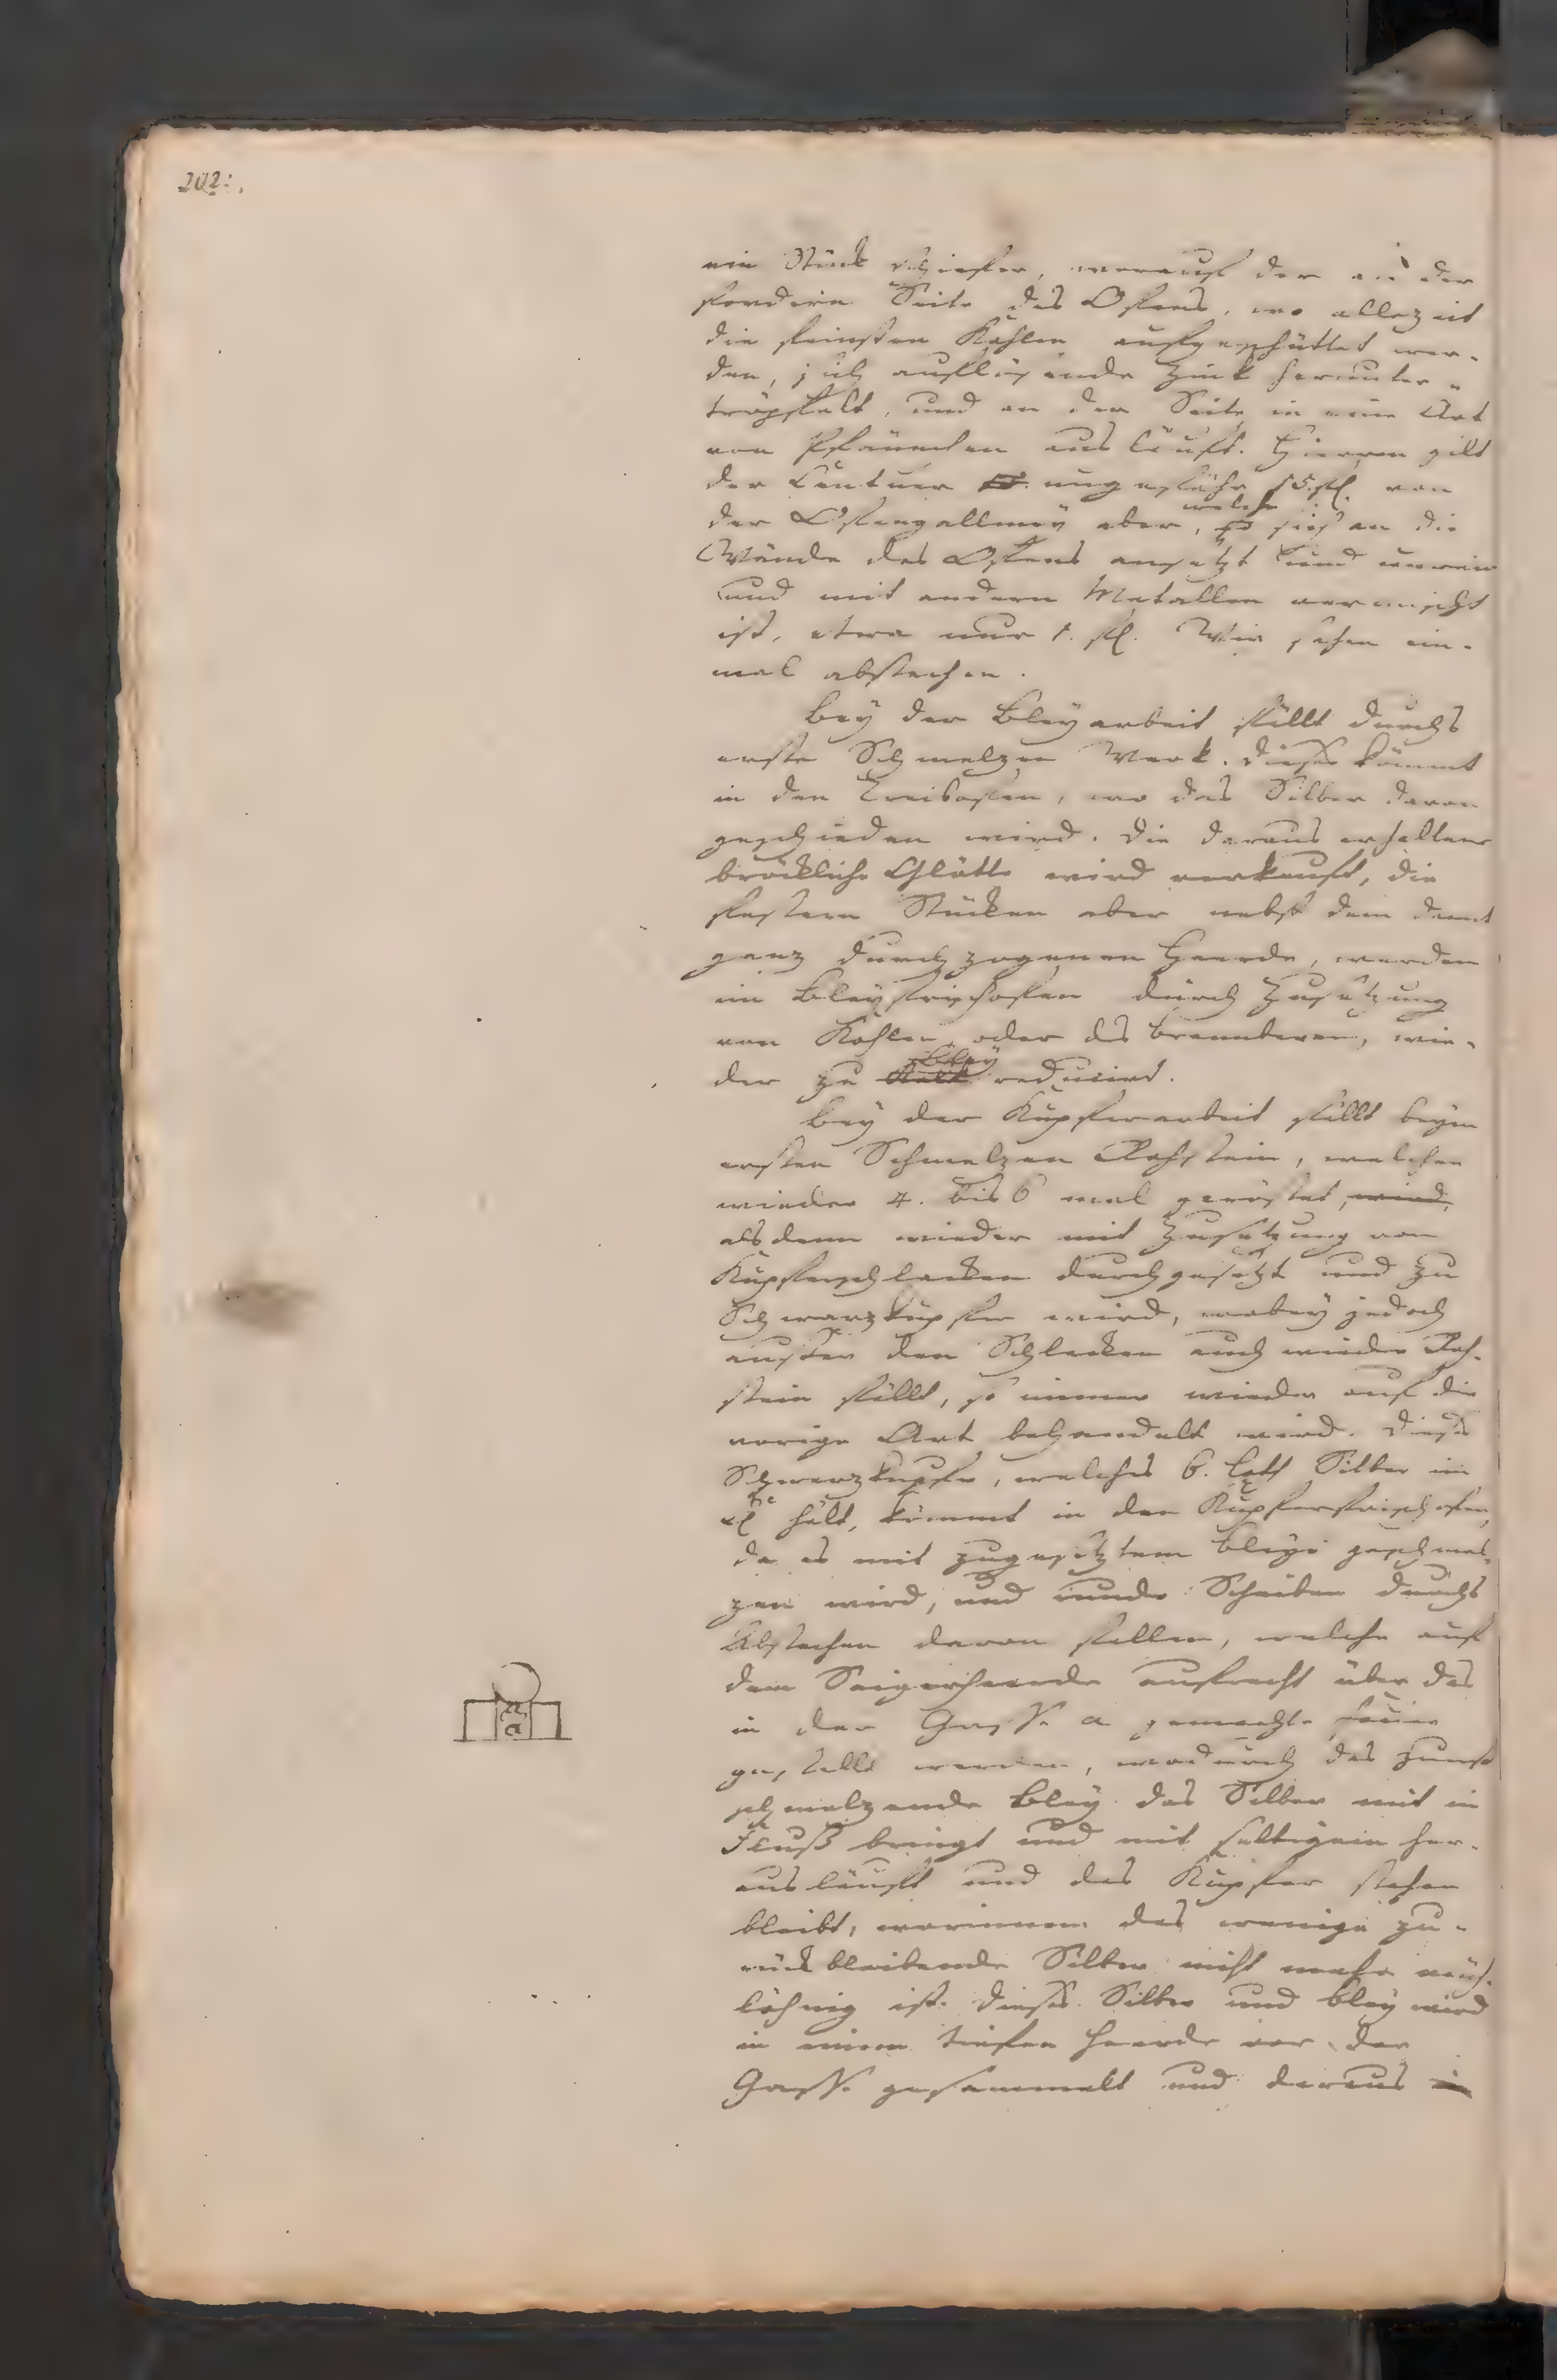 202.
ein Stück Schiefer, worauf der an der
fordern Seite des Ofens, wo allezeit
die feinsten Kohlen aufgeschüttet wer-
den, sich auflösende Zink herunter-
tröpfelt, und an der Seite in eine Art
von Pfännchen aus läuft. Hiervon gilt
der Centner ungefähr 15. fl. von
welche
der Ofengallmey aber, so sich an die
Wände des Ofens ansetzt und unrein
und mit andern Metallen vermischt
ist, etwa nur 1. fl. Wir sahen ein-
mal abstechen.
Bey der Bleyarbeit fällt durchs
erste Schmelzen Werk. Dieses kömmt
in den Treibofen, wo das Silber davon
geschieden wird. Die daraus erhaltene
bröckliche Glätte wird verkauft, die
festern Stücken aber nebst dem damit
ganz durchzogenen Heerde, werden
im Bleyfrischofen durch Zusetzung
von Kohlen, oder des brennbaren, wie-
Bley
der zu reducirt.
Bey der Kupferarbeit fällt beym
ersten Schmelzen Rohstein, welcher
wieder 4. bis 6 mal geröstet, wird,
alsdenn wieder mit Zusetzung von
Kupferschlacken durchgesetzt und zu
Schwarzkupfer wird, wobey jedoch
ausser den Schlacken auch wieder Roh-
stein fällt, so immer wieder auf die
vorige Art behandelt wird. Dieses
Schwarzkupfer, welches 6. Loth Silber im
hält, kömmt in den Kupferfrischofen,
da es mit zugesetztem Bleye geschmol-
zen wird, und runde Scheiben durchs
Abstechen davon fallen, welche auf
dem Seigerheerde aufrecht über das
in der Gasse a gemachte Feuer
gestellt werden, wodurch das zuerst
schmelzende Bley das Silber mit in
Fluß bringt und mit selbigem her-
ausläuft und das Kupfer stehen
bleibt, worinnen das wenige zu-
rückbleibende Silber nicht mehr
löhnig ist. Dieses Silber und Bley wird
in einem tiefen Heerde vor der
Gasse gesammelt und daraus in
a